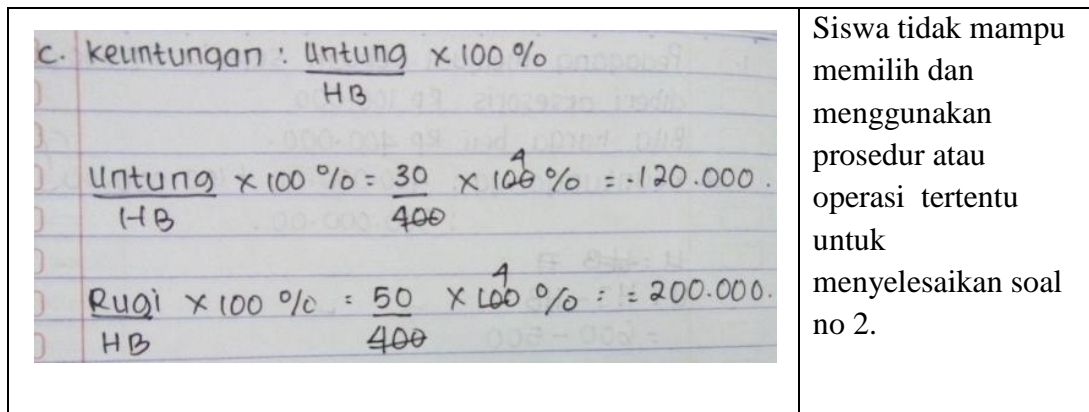 c. keuntungan : untung × 100 %
HB
untung × 100 % = 30 × 100 % = 120.000.
HB 400
4
Rugi × 100 % : 50 × 100 % : = 200.000.
HB 400
4
Siswa tidak mampu
memilih dan
menggunakan
prosedur atau
operasi tertentu
untuk
menyelesaikan soal
no 2.